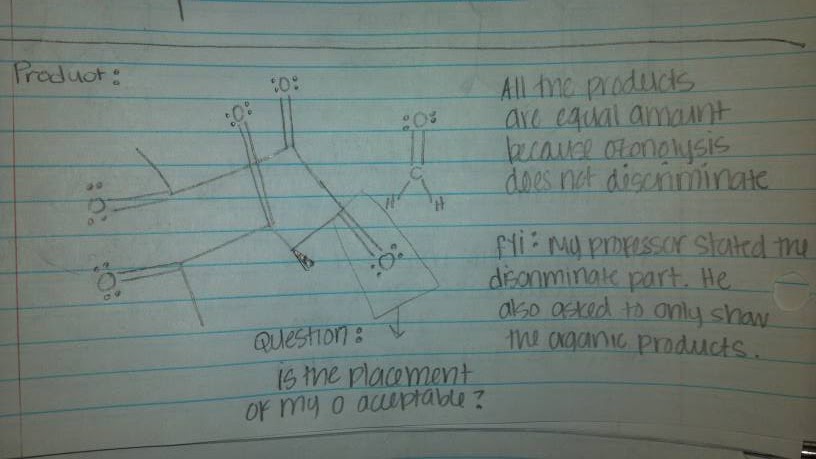 Product:
All the products
are equal amount
because ozonolysis
does not discriminate
:O:
:O:
:O:
C
H H
O
O
O
fYi: my professor stated the
discriminate part. He
also asked to only show
the organic products.
Question:
is the placement
of my O acceptable?